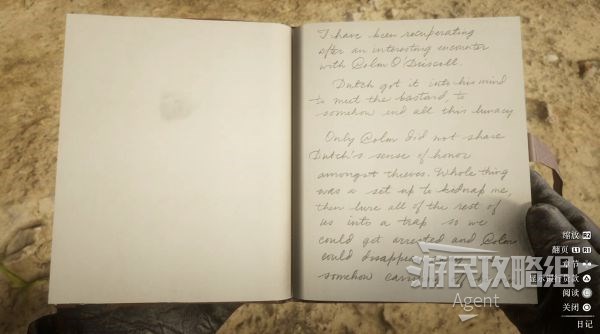 I have been recuperating
after an interesting encounter
with Colm O'Driscoll.
Dutch got it into his mind
to meet the bastard, to
somehow end all this lunacy
Only Colm did not share
Dutch's sense of honor
amongst thieves. Whole thing
was a set up to kidnap me,
then lure all of the rest of
us into a trap so we
could get arrested and Colm
could disappear
somehow
游民攻略组
Agent
缩放 R2
翻页 L1 R1
章节
阅读
关闭
日记